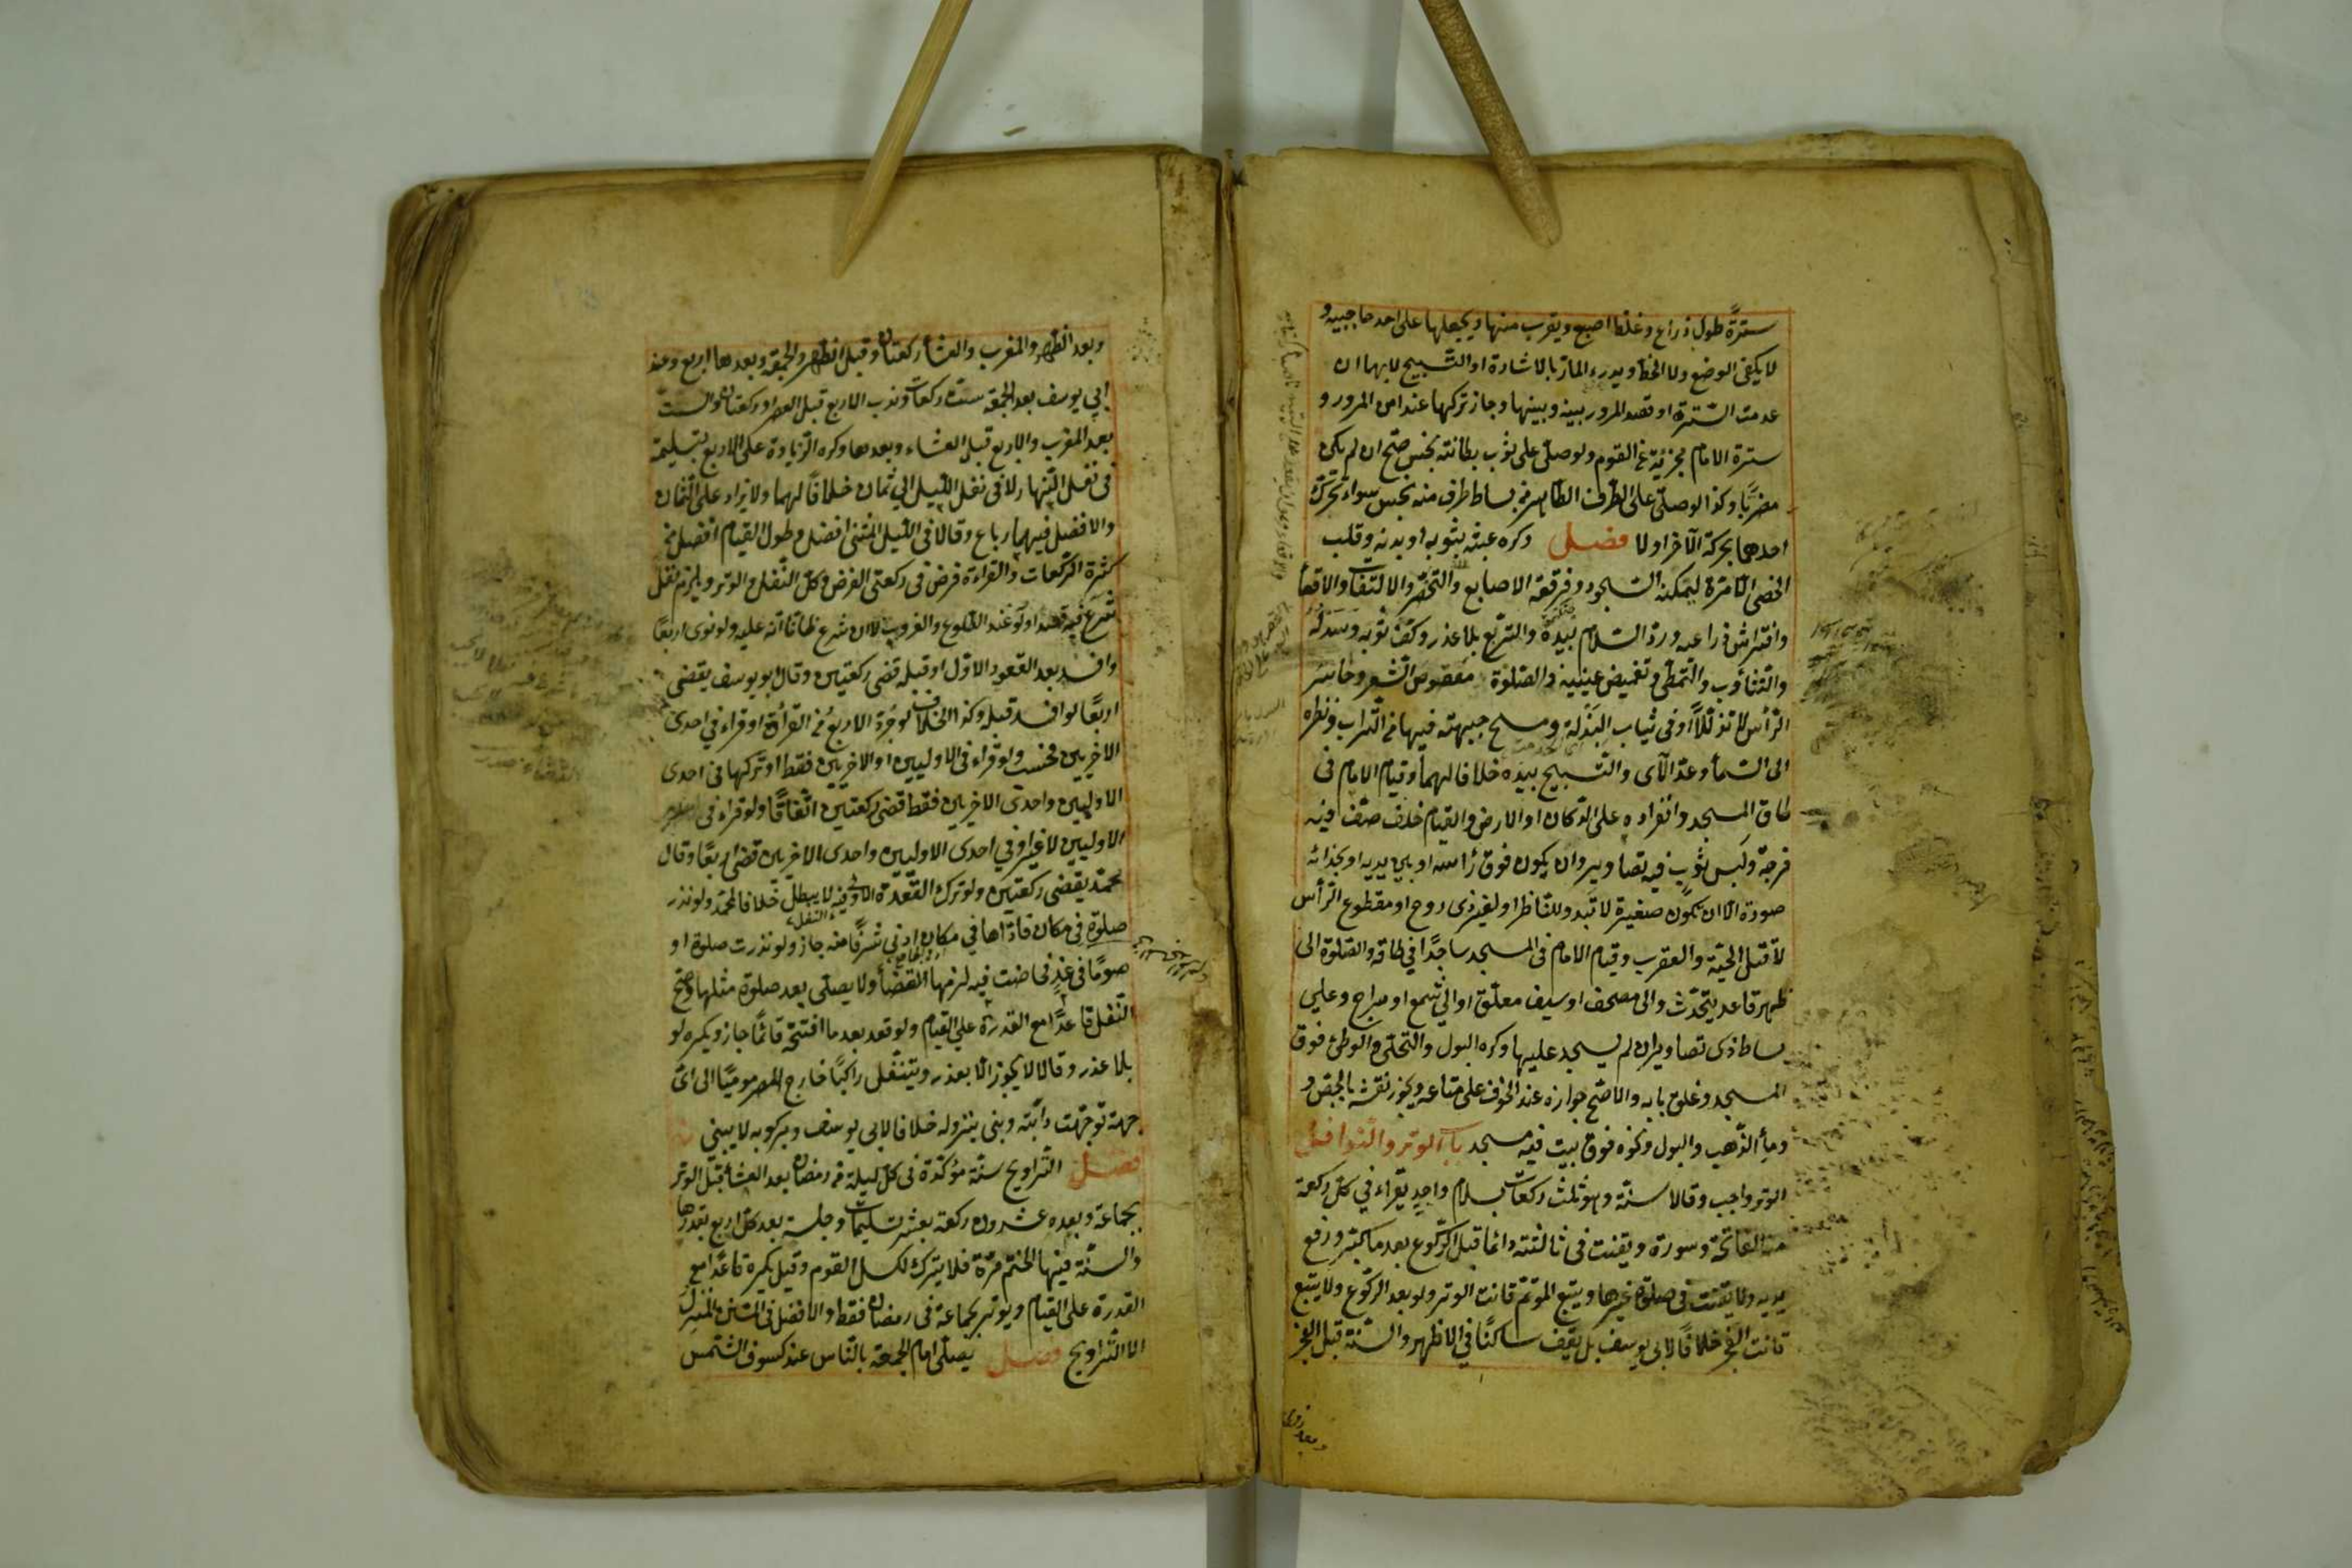 سترة طول ذراع وغلظ اصبع ويقرب منها ويجعلها على احد حاجبيه و
لا يكفى الوضع ولا الخط ويدرء المار بالاشارة او التسبيح لا بهما ان
عدمت السترة او قصد المرور بينه وبينها وجاز تركها عند امن المرور و
سترة الامام مجزئة عن القوم ولو صلى على ثوب بطانته نجس صح ان لم يكن
مضربا وكذا لو صلى على الطرف الطاهر من بساط طرف منه نجس سواء تحرك
احدهما بحركة الآخر او لا فصل وكره عبثه بثوبه او بدنه وقلب
الحصى الا مرة ليمكنه السجود وفرقعة الاصابع والتخصر والالتفات والاقعأ
وافتراش ذراعيه ورد السلام بيده والتربع بلا عذر وكف ثوبه وسدله
والتثاؤب والتمطى وتغميض عينيه والصلوة معقوص الشعر وحاسر
الرأس لا تذللا او فى ثياب البذلة ومسح جبهته فيها من التراب ونظره
الى السمأ وعد الآى والتسبيح بيده خلافا لهما وقيام الامام فى
طاق المسجد وانفراده على الدكان او الارض والقيام خلف صف فيه
فرجة ولبس ثوب فيه تصاوير وان يكون فوق رأسه او بين يديه او بحذائه
صورة الا ان تكون صغيرة لا تبدو للناظر او لغير ذى روح او مقطوع الرأس
لا قتل الحية والعقرب وقيام الامام فى المسجد ساجدا في طاقه والصلوة الى
ظهر قاعد يتحدث والى مصحف او سيف معلق او الي شمع او سراج وعلي
بساط ذى تصاوير ان لم يسجد عليها وكره البول والتخلى والوطئ فوق
المسجد وغلق بابه والاصح جوازه عند الخوف على متاعه ويجوز نقشه بالجص و
ومأ الذهب والبول ونحوه فوق بيت فيه مسجد باب الوتر والنوافل
الوتر واجب وقالا سنة وهو ثلث ركعات بسلام واحد يقراء في كل ركعة
منه الفاتحة وسورة ويقنت فى ثالثته دائما قبل الركوع بعد ما كبر ورفع
يديه ولا يقنت فى صلوة غيرها ويتبع المؤتم قانت الوتر ولو بعد الركوع ولا يتبع
قانت الفجر خلافا لابى يوسف بل يقف ساكتا في الاظهر والسنة قبل الفجر
وبعد الظهر والمغرب والعشأ ركعتان وقبل الظهر والجمعة وبعدها اربع وعند
ابي يوسف بعد الجمعة ست ركعات وندب الاربع قبل العصر او ركعتان والست
بعد المغرب والاربع قبل العشاء وبعدها وكره الزيادة على الاربع بتسليمة
فى نفل النهار لا فى نفل الليل الي ثمان خلافا لهما ولا يزاد على الثمان
والافضل فيهما رباع وقالا فى الليل المثنى افضل وطول القيام افضل من
كثرة الركعات والقراءة فرض فى ركعتى الفرض وكل النفل والوتر ويلزم نفل
شرع فيه قصدا ولو عند الطلوع والغروب لا ان شرع ظانا انه عليه ولو نوى اربعا
وافسد بعد القعود الاول او قبله قضى ركعتين وقال ابو يوسف يقضى
اربعا لو افسد قبله وكذا الخلاف لو جرد الاربع من القرأة او قراء في احدى
الاخريين فحسب ولو قراء فى الاوليين او الاخريين فقط او تركها فى احدى
الاوليين واحدى الاخريين فقط قضى ركعتين اتفاقا ولو قراء فى احدى
الاوليين لا غير او في احدى الاوليين واحدى الاخريين قضى اربعا وقال
محمد يقضى ركعتين ولو ترك القعدة الاولى فيه لا يبطل خلافا لمحمد ولو نذر
صلوة فى مكان فاداها في مكان ادنى شرفا منه جاز ولو نذرت صلوة او
صوما فى غد فحاضت فيه لزمها القضأ ولا يصلى بعد صلوة مثلها وصح
النفل قاعدا مع القدرة على القيام ولو قعد بعد ما افتتحه قائما جاز ويكره لو
بلا عذر وقالا لا يجوز الا بعذر ويتنفل راكبا خارج المصر موميا الى اى
جهة توجهت دابته وبنى بنزوله خلافا لابى يوسف وبركوبه لا يبنى
فصل التراويح سنة مؤكدة فى كل ليلة من رمضان بعد العشأ قبل الوتر
بجماعة وبعده عشرون ركعة بعشر تسليمات وجلسة بعد كل اربع بقدرها
والسنة فيها الختم مرة فلا يترك لكسل القوم وقيل يكره قاعدا مع
القدرة على القيام ويوتر بجماعة فى رمضان فقط والافضل فى السنن المنزل
الا التراويح فصل يصلى امام الجمعة بالناس عند كسوف الشمس